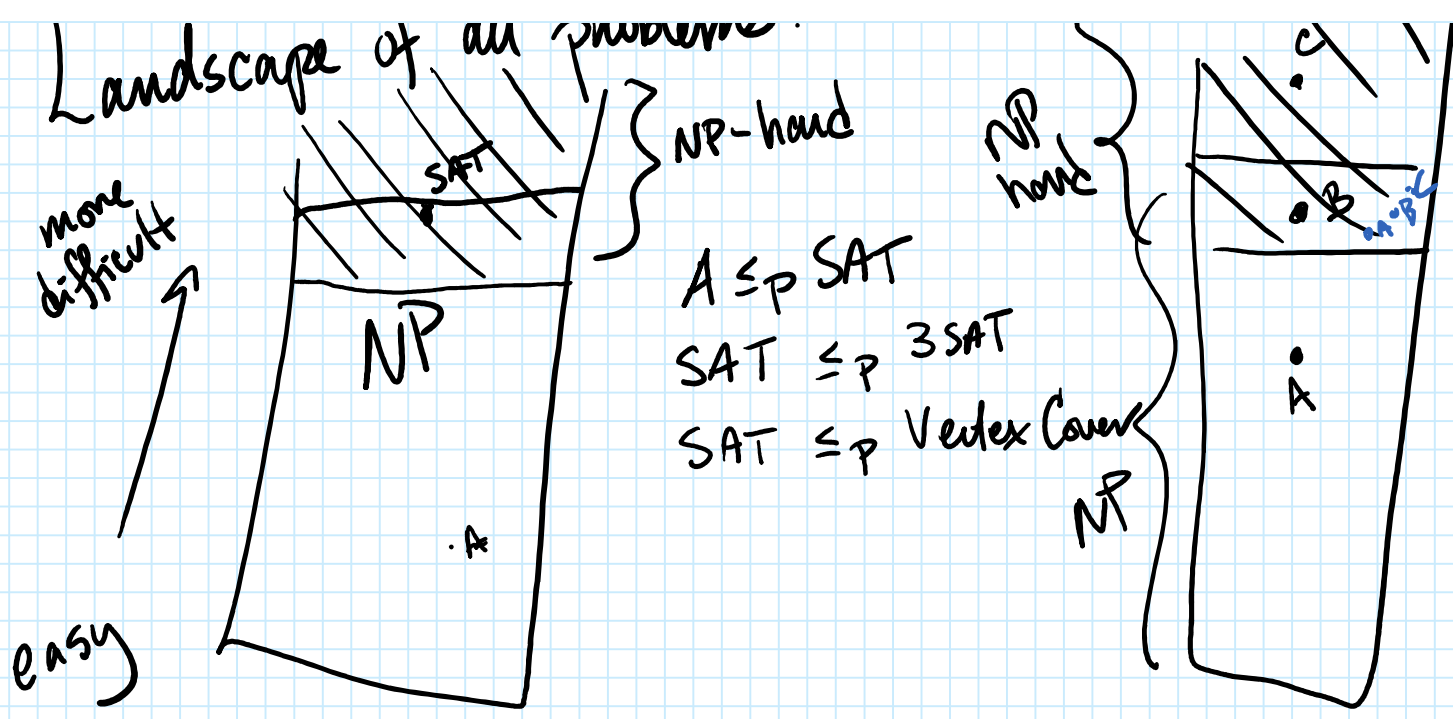 Landscape of all problems.
more
difficult
easy
SAT
NP-hard
NP
A
A ≤p SAT
SAT ≤p 3SAT
SAT ≤p Vertex Cover
NP
hard
NP
C
B
A
A B C